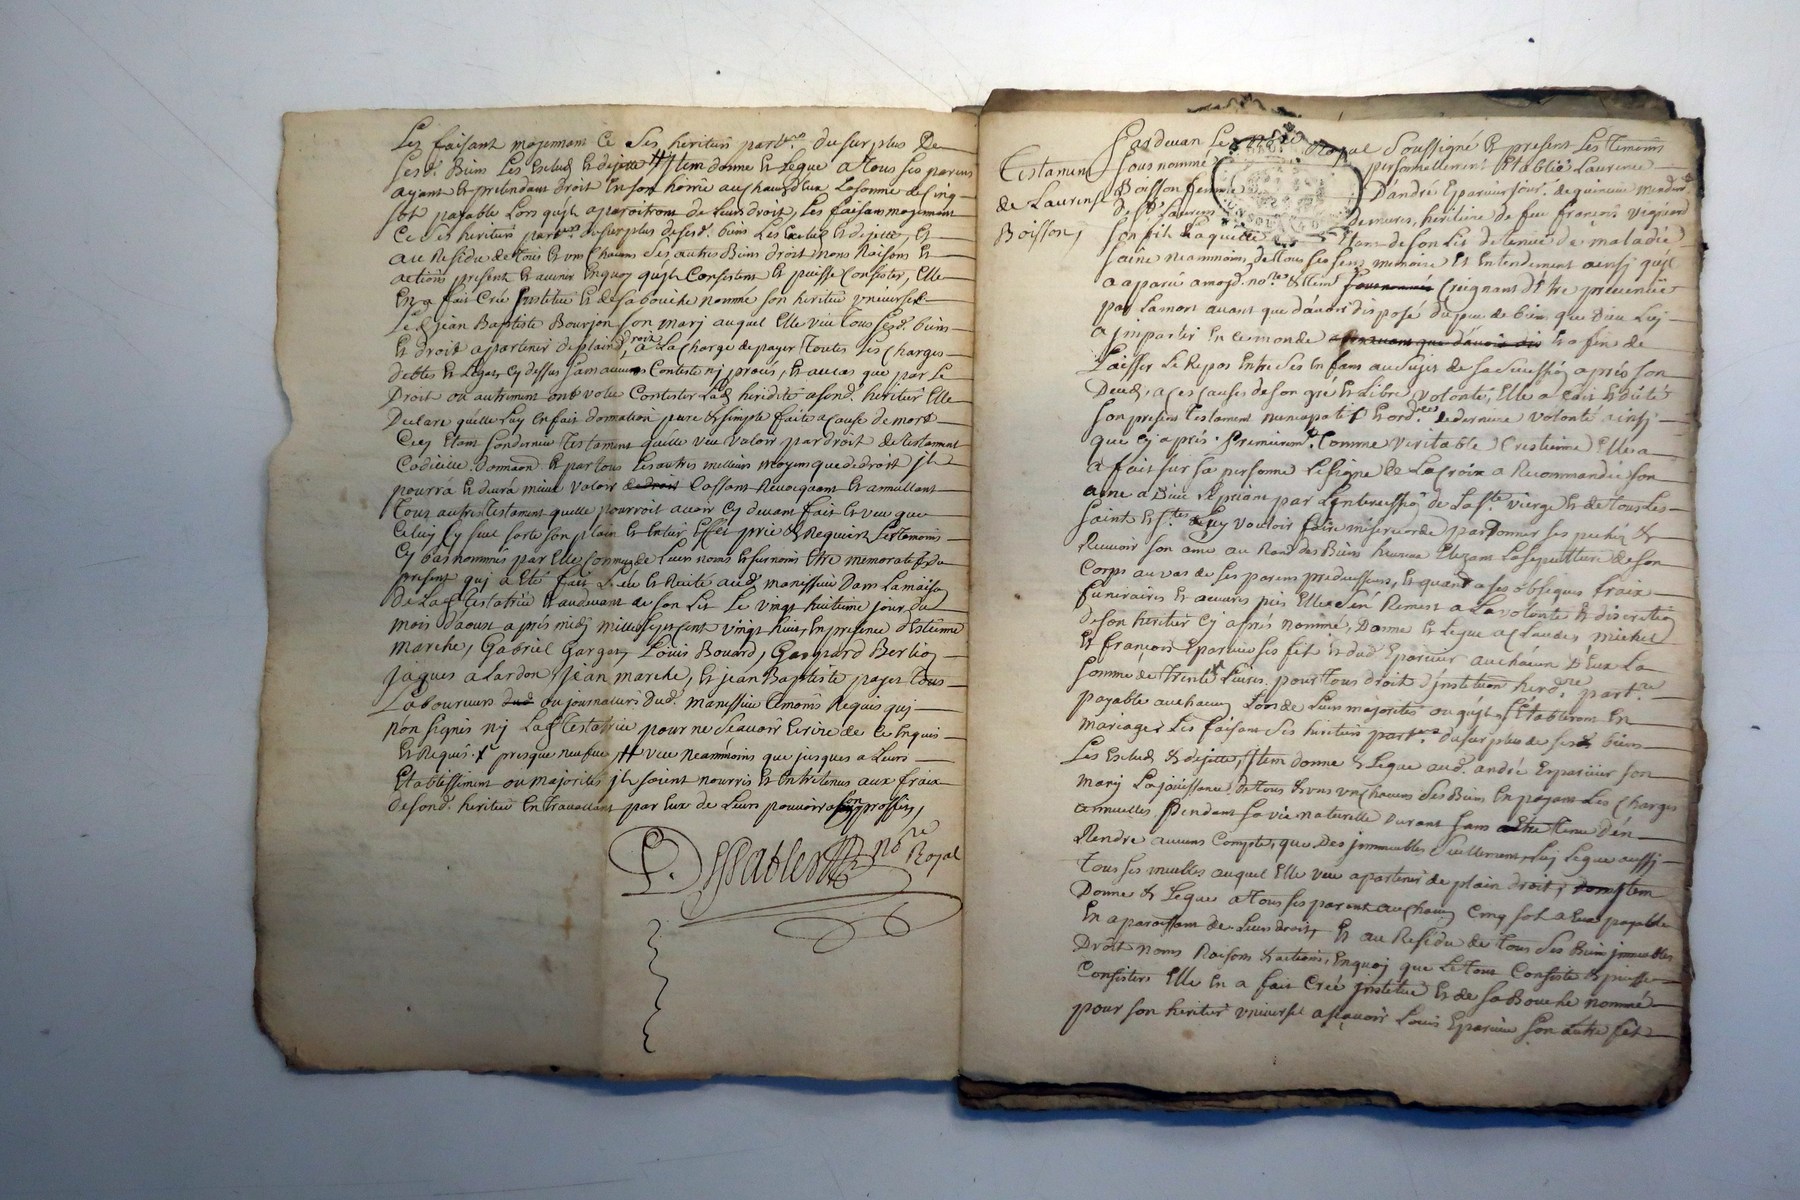 Les faisant moyennant ce ses heritiers part.res du surplus de
sesd. Biens Les Exclud et dejette # Jtem donne et Legue a tous ses parens
ayant et pretendans droit en son hoirie a chacun d'eux La somme de Cinq
sol payable Lors qu'ils aparoitront de Leurs droit, Les faisant moyennant
Ce ses heritiers part.res du surplus de sesd. biens Les Exclud et dejette, et
au Residu de tous et uns chacuns ses autres Biens droit noms Raisons et
actions present et avenir Enquoy qu'ils Consistent et puisse Consister, Elle
En a fait Créé Jnstitue et de sa bouche nommé son heritier universel
Led. jean Baptiste Bourjon son mary auquel Elle veu tous sesd. biens
et droit apartenir de plain droit, a La charge de payer toutes ses charges
debtes et Legats Cy dessus sans aucuns Conteste nj procés, et au cas que par Le
Droit ou autrement on voulu Contester Lad. heridité asond. heritier Elle
Declare qu'elle Luy En fait donnation pure et simple faite a cause de mort
Cecy Etant son dernier testament qu'elle veu valoir par droit de testament
Codicille donnaon. et par tous Les autres meilleurs moyens que de droit jl
pourra et devrá mieux valoir de droit Cassant Revocquant et annullant
tous autres testament quelle pourroit avoir Cy devant fait et veu que
Celuy Cy sue sorte son plain et Entier Effet prie et Requiert Les temoins
Cy bas nommés par Elle Connus de Leurs noms et surnoms Etre memoratif du
present quj a Eté fait Leu et Recité aud. manissieu Dans La maison
de Lad. testatrice et audevant de son Lit Le vingt huitieme jour du
mois daoust apres midy mille sept cent vingt huit, En presence d'Estienne
marche, Gabriel Garget, Louis Bouard, Gaspard Berlioz
jaques alardon, jean marche, et jean Baptiste pajet tous
Laboureurs dud ou journaliers dud. manissieu temoins Requis quj
n'on signés nj Lad. testatrice pour ne scavoir Ecrire de ce Enquis
et Requis. X presque neufue, # veu neammoins que jusques a Leurs
Etablissement ou majorités jls soient nourris et Entretenus aux fraix
desond. heritier En travaillant par Eux de Leurs pouvoir a son proffit,
not.re Royal
Testament
de Laurence
Boisson,
Pardevan Le not.re Royal Soussigné et present Les temoins
sous nommé personnellement Etablie Laurence
Boisson femme D'andré Eparvier
de St Laurens demeures, heritiere de feu françois vignon
son fils Laquelle Etant de son Lit detenue de maladie
saine neammoins de tous ses sens memoire et Entendement ainsj quil
a aparu amojd. no.re et tem. sous nommés Creignant d'etre prevenüe
par La mort avant que d'avoir disposé du peu de bien que Dieu Luj
a Jmparti En ce monde avant que d'avoir dis et a fin de
Laisser Le Repos Entre ses En fans au sujet de sa succession aprés son
Decéd, a ces causes de son gré et Libre volonté, Elle a fait et dicté
son present testament nuncupatif et ord.ce de derniere volonté ainsj
que Cy aprés. Premierem.t Comme veritable Crestienne Elle a
a fait sur sa personne Le signe de La croix a Recommandé son
ame a Dieu Le priant par L'intercession de La Ste vierge et de tous Les
saint et Ste de Luy vouloir faire misericorde pardonner ses pechés et
Recevoir son ame au Rand des Bien heureux Elizant La sepulture de son
Corps au vas de ses parens predecesseurs, et quand a ses obseques fraix
funeraires et œuvres pies Elle s'en Remest a La volonté et discretion
de son heritier Cy aprés nommé, Donne et Legue a Claudes michel
et françois Eparvier ses fils et dud Eparvier a chacun d'Eux La
somme de trente Livres pour tous droit d'jnstitution herd.re part.re
payable a chacun Lors de Leurs majorités ou qu'ils s'Etabliront En
mariage Les faisant ses heritiers part.res du surplus de sesd. biens
Les Exclud et dejette, Jtem donne et Legue aud. andré Eparvier son
mary La jouissance de tous et uns un chacuns ses Biens En payant Les charges
annuelles Pendant sa vie naturelle durant sans etre tenu d'En
Rendre aucuns Compte, que Des jmmeubles seullement, Luy Legue aussj
tous ses meubles auquel Elle veu apartenir de plain droit, Jtem
Donne et Legue a tous ses parent a chacun Cinq sol a Eux payable
En aparoissant de Leurs droit, et au Residu de tous ses Bien jmeubles
Droit noms Raisons et actions, Enquoj que Le tout Consiste et puisse
Consister, Elle En a fait Créé jnstitue et de sa Bouche nommé
pour son heritier universel asçavoir Louis Eparvier son autre fils